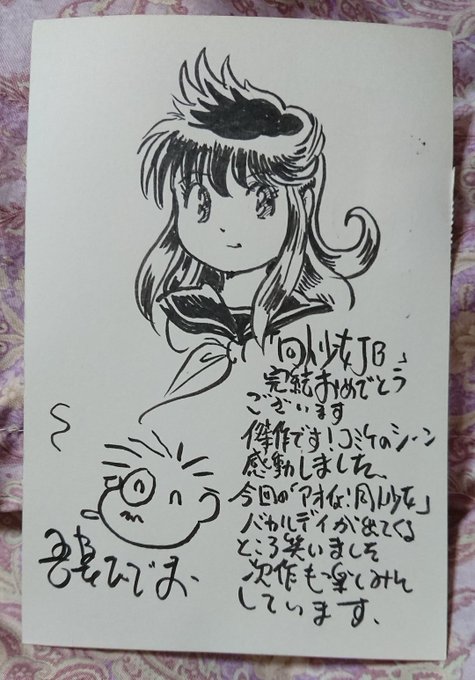 「同人少女JB」
完結おめでとう
ございます
傑作です!コミケのシーン
感動しました、
今回の「アオイホ同人少女」
バカルディが出てくる
ところ笑いました
次作も楽しみに
しています、
吾妻ひでお